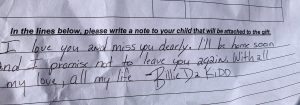 In the lines below, please write a note to your child that will be attached to the gift.
I love you and miss you dearly. I'll be home soon
and I promise not to leave you again. With all
my love, all my life - Billie Da Kidd